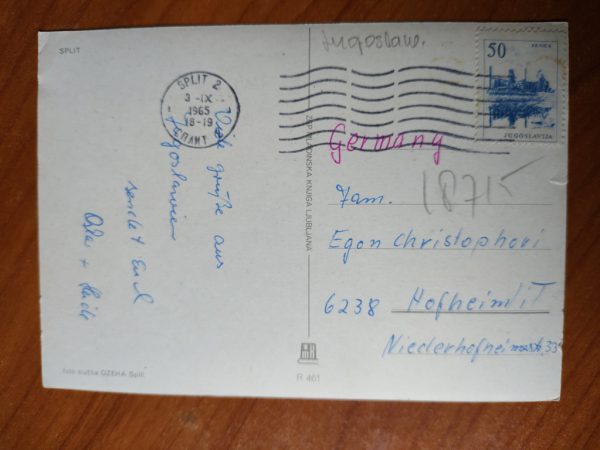 SPLIT
Jugoslaw.
50
JUGOSLAVIJA
SPLIT 2
3 -IX
1965
18-19
Viele Grüße aus
Jugoslawien
sendet Euch
Germany
Fam.
1871
Egon Christophori
6238 Hofheim/T
Niederhofheimerstr. 33
KNJIGA LJUBLJANA
foto svetka OZEHA Split
R 461